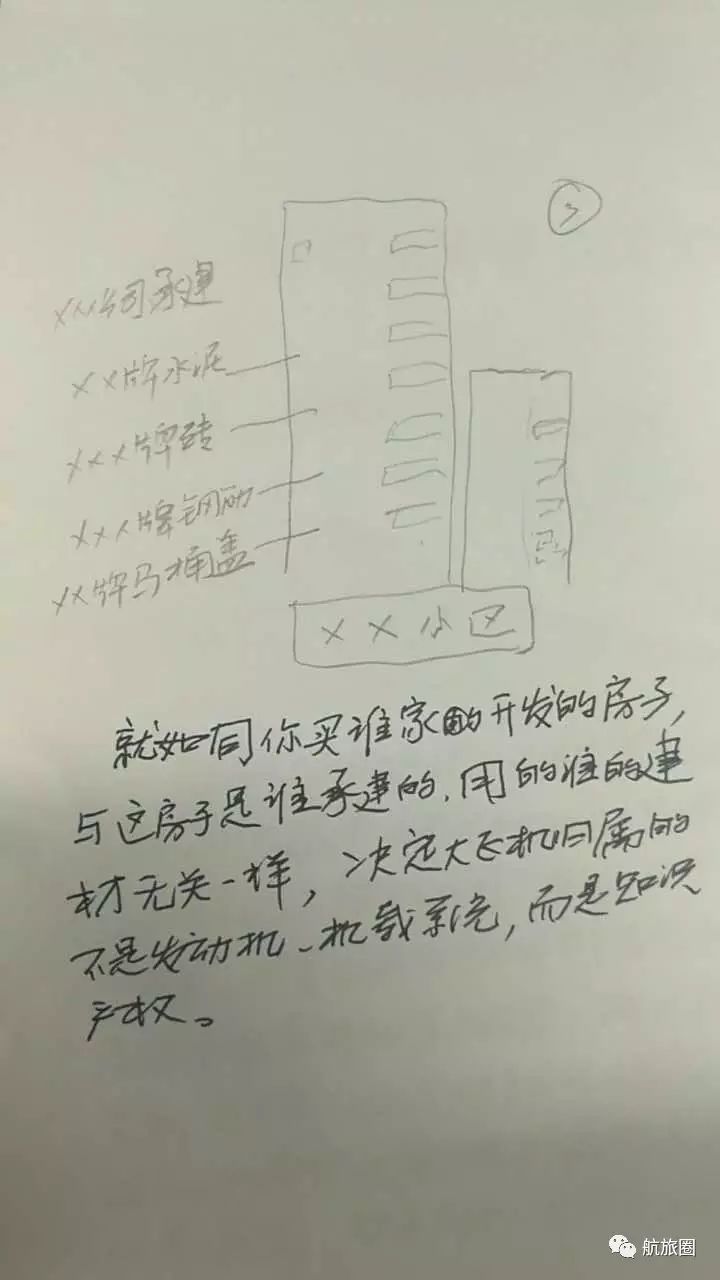 3
XXX公司承建
XX牌水泥
XXX牌砖
XXX牌钢筋
XX牌马桶盖
XX小区
就如同你买谁家的开发的房子,
与这房子是谁承建的,用的谁的建
材无关一样,决定大飞机归属的
不是发动机、机载系统,而是知识
产权。
航旅圈